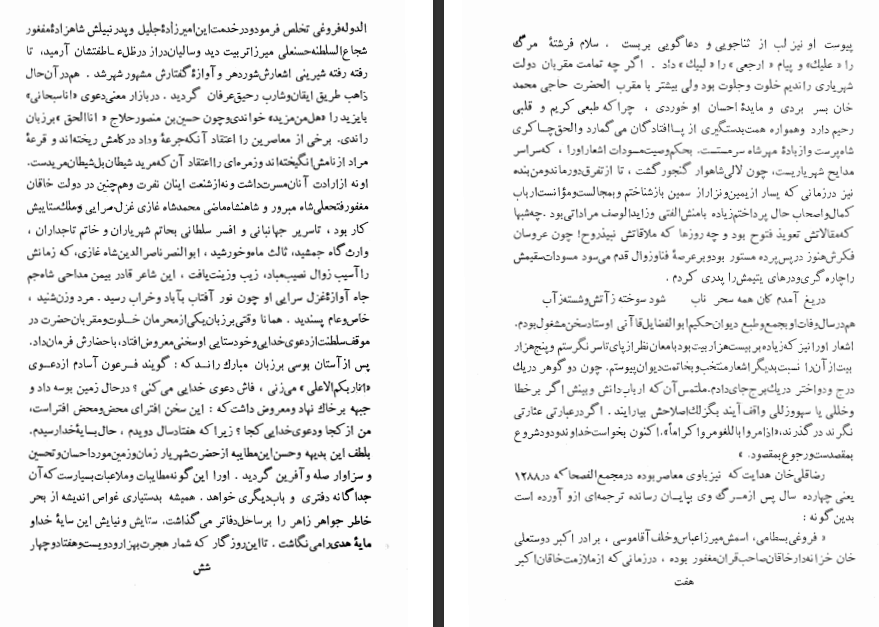 الدوله فروغی تخلص فرمود و در خدمت این امیرزادهٔ جلیل و پدر نبیلش شاهزادهٔ مغفور
شجاع السلطنه حسنعلی میرزا تربیت دید و سالیان دراز در ظل عاطفتشان آرمید، تا
رفته رفته شیرینی اشعارش شور دهر و آوازهٔ گفتارش مشهور شهر شد . هم در آن حال
ذاهب طریق ایقان و شارب رحیق عرفان گردید . در بازار معنی دعوی «اناسبحانی»
بایزید را «هل من مزید» خواندی و چون حسین بن منصور حلاج «اناالحق» بر زبان
راندی. برخی از معاصرین را اعتقاد آنکه جرعهٔ وداد در کامش ریخته‌اند و قرعهٔ
مراد از نامش انگیخته‌اند و زمره‌ای را اعتقاد آن که مرید شیطان بل شیطان مرید است.
او نه از ارادت آنان مسرت داشت و نه از شنعت اینان نفرت و هم چنین در دولت خاقان
مغفور فتحعلی شاه مبرور و شاهنشاه ماضی محمد شاه غازی غزل سرایی و ملک ستاییش
کار بود ، تا سریر جهانبانی و افسر سلطانی بخاتم شهریاران و خاتم تاجداران ،
وارث گاه جمشید، ثالث ماه و خورشید ، ابوالنصر ناصرالدین شاه غازی، که زمانش
را آسیب زوال نصیب مباد، زیب و زینت یافت ، این شاعر قادر بیمن مداحی شاه جم
جاه آوازهٔ غزل سرایی او چون نور آفتاب بآباد و خراب رسید . مرد و زن شنید ،
خاص و عام پسندید . همانا وقتی بر زبان یکی از محرمان خلوت و مقربان حضرت در
موقف سلطنت از دعوی خدایی و خودستایی او سخنی معروض افتاد، باحضارش فرمان داد.
پس از آستان بوسی بر زبان مبارک راندکه : گویند فرعون آسا دم از دعوی
«اناربکم الاعلی» میزنی ، فاش دعوی خدایی می‌کنی ؟ درحال زمین بوسه داد و
جبهه بر خاک نهاد و معروض داشت که : این سخن افترای محض و محض افتر است،
من از کجا و دعوی خدایی کجا ؟ زیرا که هفتاد سال دویدم ، حال بسایهٔ خدا رسیدم.
بلطف این بدیهه و حسن این مطایبه از حضرت شهریار زمان و زمین مورد احسان و تحسین
و سزاوار صله و آفرین گردید . اورا این گونه مطایبات و ملاعبات بسیارست که آن
جداگانه دفتری و باب دیگری خواهد . همیشه بدستیاری غواص اندیشه از بحر
خاطر جواهر زاهر را بر ساحل دفاتر می‌گذاشت. ستایش و نیایش این سایهٔ خدا و
مایهٔ هدی را می‌نگاشت . تا این روزگار که شمار هجرت بهزار و دویست و هفتاد و چهار
شش
پیوست او نیز لب از ثناجویی و دعاگویی بربست . سلام فرشتهٔ مرگ
را «علیک» و پیام «ارجعی» را «لبیک» داد . اگر چه تمامت مقربان دولت
شهریاری را ندیم خلوت و جلوت بود ولی بیشتر با مقرب الحضرت حاجی محمد
خان بسر بردی و مایدهٔ احسان او خوردی ، چرا که طبعی کریم و قلبی
رحیم دارد و همواره همت بدستگیری از پا افتادگان می‌گمارد و الحق چاکری
شاه پرست و از بادهٔ مهر شاه سرمستست. بحکم وصیت مسودات اشعار اورا ، که سراسر
مدایح شهریاریست، چون لالی شاهوار گنجور گشت ، تا از تفرق دور ماند و من بنده
نیز در زمانی که یسار از یمین و نزار از سمین بازشناختم و بمجالست و مؤانست ارباب
کمال و اصحاب حال پرداختم زیاده بامنش الفتی و زاید الوصف مراداتی بود . چه شبها
که مقالاتش تعویذ فتوح بود و چه روزها که ملاقاتش نبیذ روح! چون عروسان
فکرش هنوز در پس پرده مستور بود و بر عرصهٔ فنا و زوال قدم می‌سود مسودات سقیمش
را چاره گری و درهای یتیمش را پدری کردم .
دریغ آمدم کان همه سحر ناب شود سوخته ز آتش و شسته ز آب
هم در سال وفات او بجمع و طبع دیوان حکیم ابوالفضایل قاآنی اوستاد سخن مشغول بودم.
اشعار اورا نیز که زیاده بر بیست هزار بیت بود با معان نظر از پای تا سر نگرستم و پنج هزار
بیت از آن را نسبت بدیگر اشعار منتخب و بخاتمت دیوان پیوستم. چون دو گوهر در یک
درج و دو اختر در یک برج جای دادم. ملتمس آن که ارباب دانش و بینش اگر بر خطا
و خللی یا سهو و زللی واقف آیند بگزلک اصلاحش بیارایند . اگر در عبارتی عثارتی
نگرند در گذرند، «اذا مروا باللغو مروا کراما»، اکنون بخواست خداوند ودود شروع
بمقصدست و رجوع بمقصود. »
رضاقلی خان هدایت که نیز باوی معاصر بوده در مجمع الفصحا که در ۱۲۸۸
یعنی چهارده سال پس از مرگ وی بپایان رسانده ترجمه‌ای از و آورده است
بدین گونه :
« فروغی بسطامی، اسمش میرزا عباس و خلف آقا موسی ، برادر اکبر دوستعلی
خان خزانه‌دار خاقان صاحب قران مغفور بوده ، در زمانی که از ملازمت خاقان اکبر
هفت